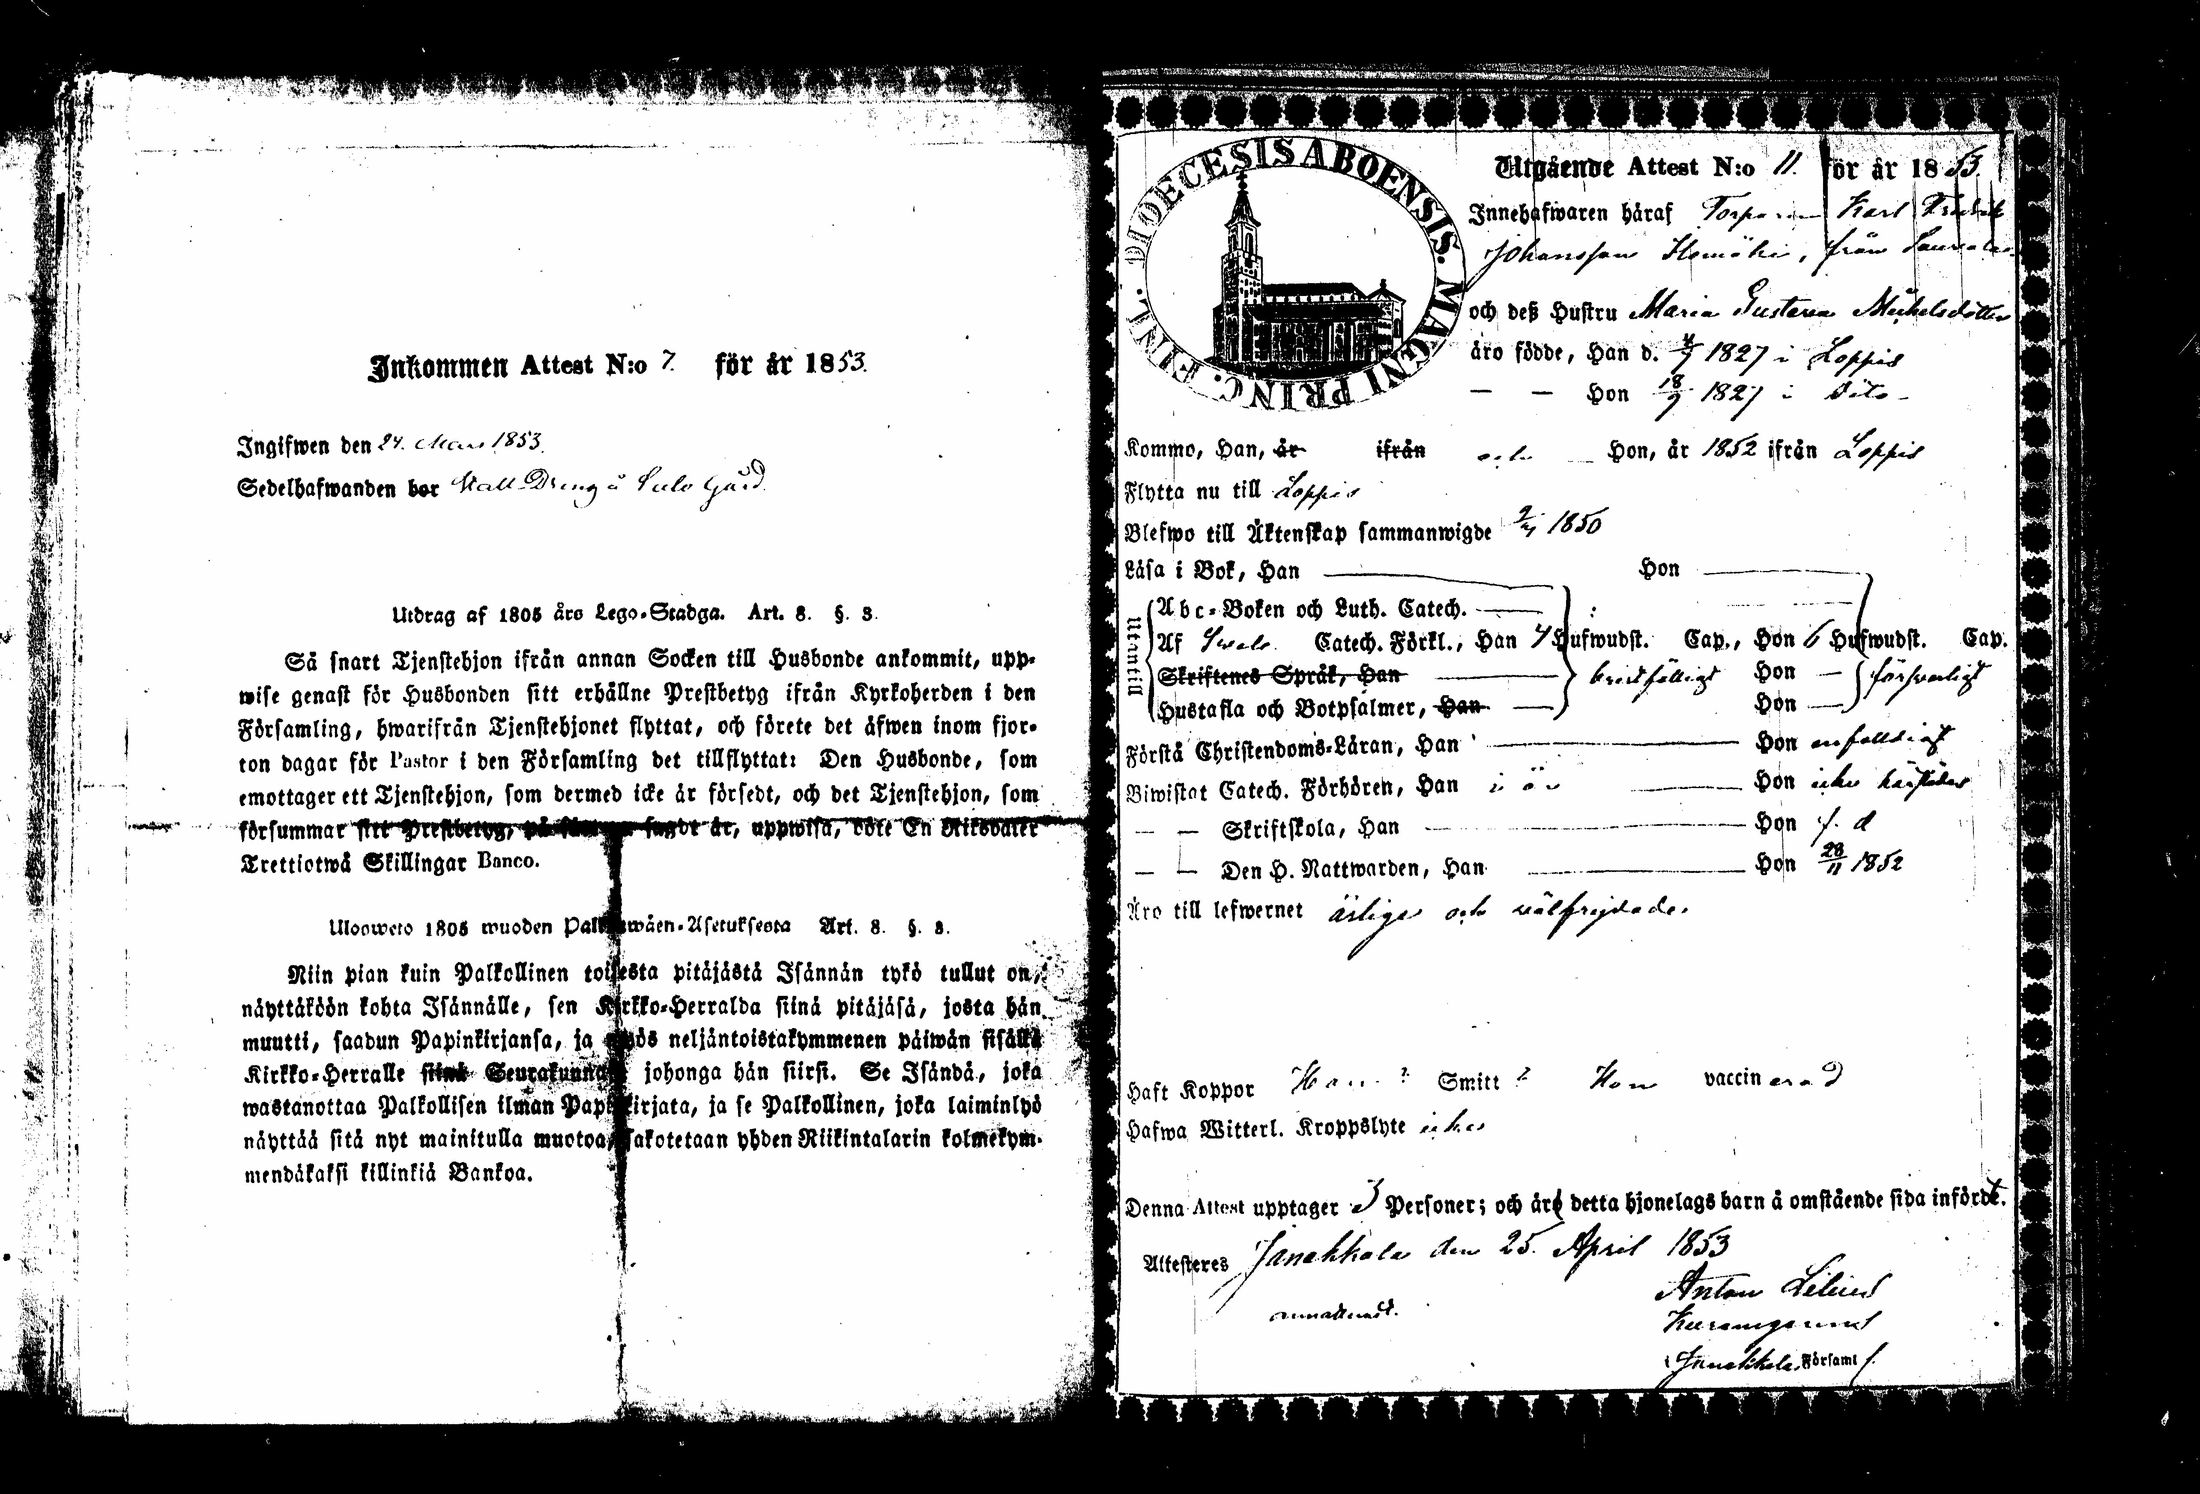 Inkommen Attest N:o 7. för år 1853.
Ingifwen den 24. Mars 1853.
Sedelhafwanden bor Stall-Dreng å Gård.
Utdrag af 1805 års Lego-Stadga. Art. 8. §. 3.
Så snart Tjenstehjon ifrån annan Socken till Husbonde ankommit, upp-
wise genast för Husbonden sitt erhållne Prestbetyg ifrån Kyrkoherden i den
Församling, hwarifrån Tjenstehjonet flyttat, och förete det äfwen inom fjor-
ton dagar för Pastor i den Församling det tillflyttat: Den Husbonde, som
emottager ett Tjenstehjon, som dermed icke är försedt, och det Tjenstehjon, som
försummar sitt Prestbetyg, på sätt nu sagdt är, uppwisa, böte En Riksdaler
Trettiotwå Skillingar Banco.
Uloswete 1805 wuoden Palkawäen-Asetuksesta Art. 8. §. 3.
Niin pian kuin Palkollinen toisesta pitäjästä Isännän tykö tullut on,
näyttäköön kohta Isännälle, sen Kirkko-Herralda siinä pitäjäsä, josta hän
muutti, saadun Papinkirjansa, ja myös neljäntoistakymmenen päiwän sisällä
Kirkko-Herralle siinä Seurakunnasa johonga hän siirsi. Se Isändä, joka
wastanottaa Palkollisen ilman Papinkirjata, ja se Palkollinen, joka laiminlyö
näyttää sitä nyt mainitulla muotoa, sakotetaan yhden Riikintalarin kolmekym-
mendäkaksi killinkiä Bankoa.
DIOECESIS ABOENSIS. MAGNI PRINC. FINL.
Utgående Attest N:o 11. för år 1853.
Innehafwaren häraf Torparen Karl Fredrik
Johansson Isomäki, från
och deß Hustru Maria Gustava Michelsdotter
äro födde, Han d. 1827 i Loppis
— — Hon 18/9 1827 i dito
Kommo, Han, år ifrån och Hon, år 1852 ifrån Loppis
Flytta nu till Loppis
Blefwo till Äktenskap sammanwigde 1850
Läsa i Bok, Han Hon
Utantill
Abc-Boken och Luth. Catech.
Af Svebi. Catech. Förkl., Han 4 Hufwudst. Cap., Hon 6 Hufwudst. Cap.
Skriftenes Språk, Han bristfälligt Hon försvarligt
Hustafla och Botpsalmer, Han Hon
Förstå Christendoms-Läran, Han Hon enfaldigt
Biwistat Catech. Förhören, Han i år Hon icke härstädes
— — Skriftskola, Han Hon f. d
— — Den H. Nattwarden, Han Hon 28/11 1852
Äro till lefwernet ärliga och välfrejdade.
Haft Koppor Han ? Smitt ? Hon vaccinerad
Hafwa Witterl. Kroppslyte icke
Denna Attest upptager 3 Personer; och äro detta hjonelags barn å omstående sida införde.
Attesteres Janakkala den 25. April 1853
Anton Lilius
i Janakkala Församl.